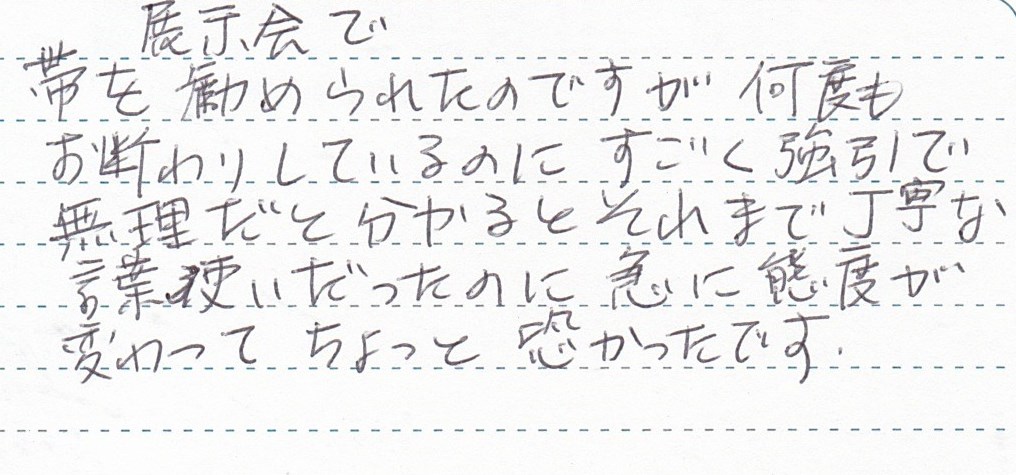 展示会で
帯を勧められたのですが 何度も
お断わりしているのに すごく強引で
無理だと分かるとそれまで丁寧な
言葉使いだったのに 急に態度が
変わって ちょっと 恐かったです.